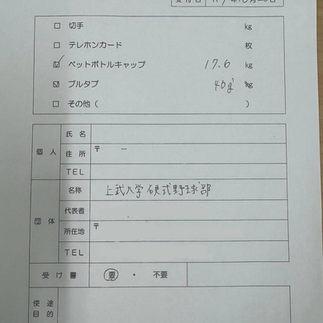 □ 切手 kg
□ テレホンカード 枚
☑ ペットボトルキャップ 17.6 kg
☑ プルタブ 40g kg
□ その他（ ）
個人
氏名
住所 〒 －
TEL
団体
名称 上武大学硬式野球部
代表者
所在地 〒
TEL
受け書 要 ・ 不要
使途
目的